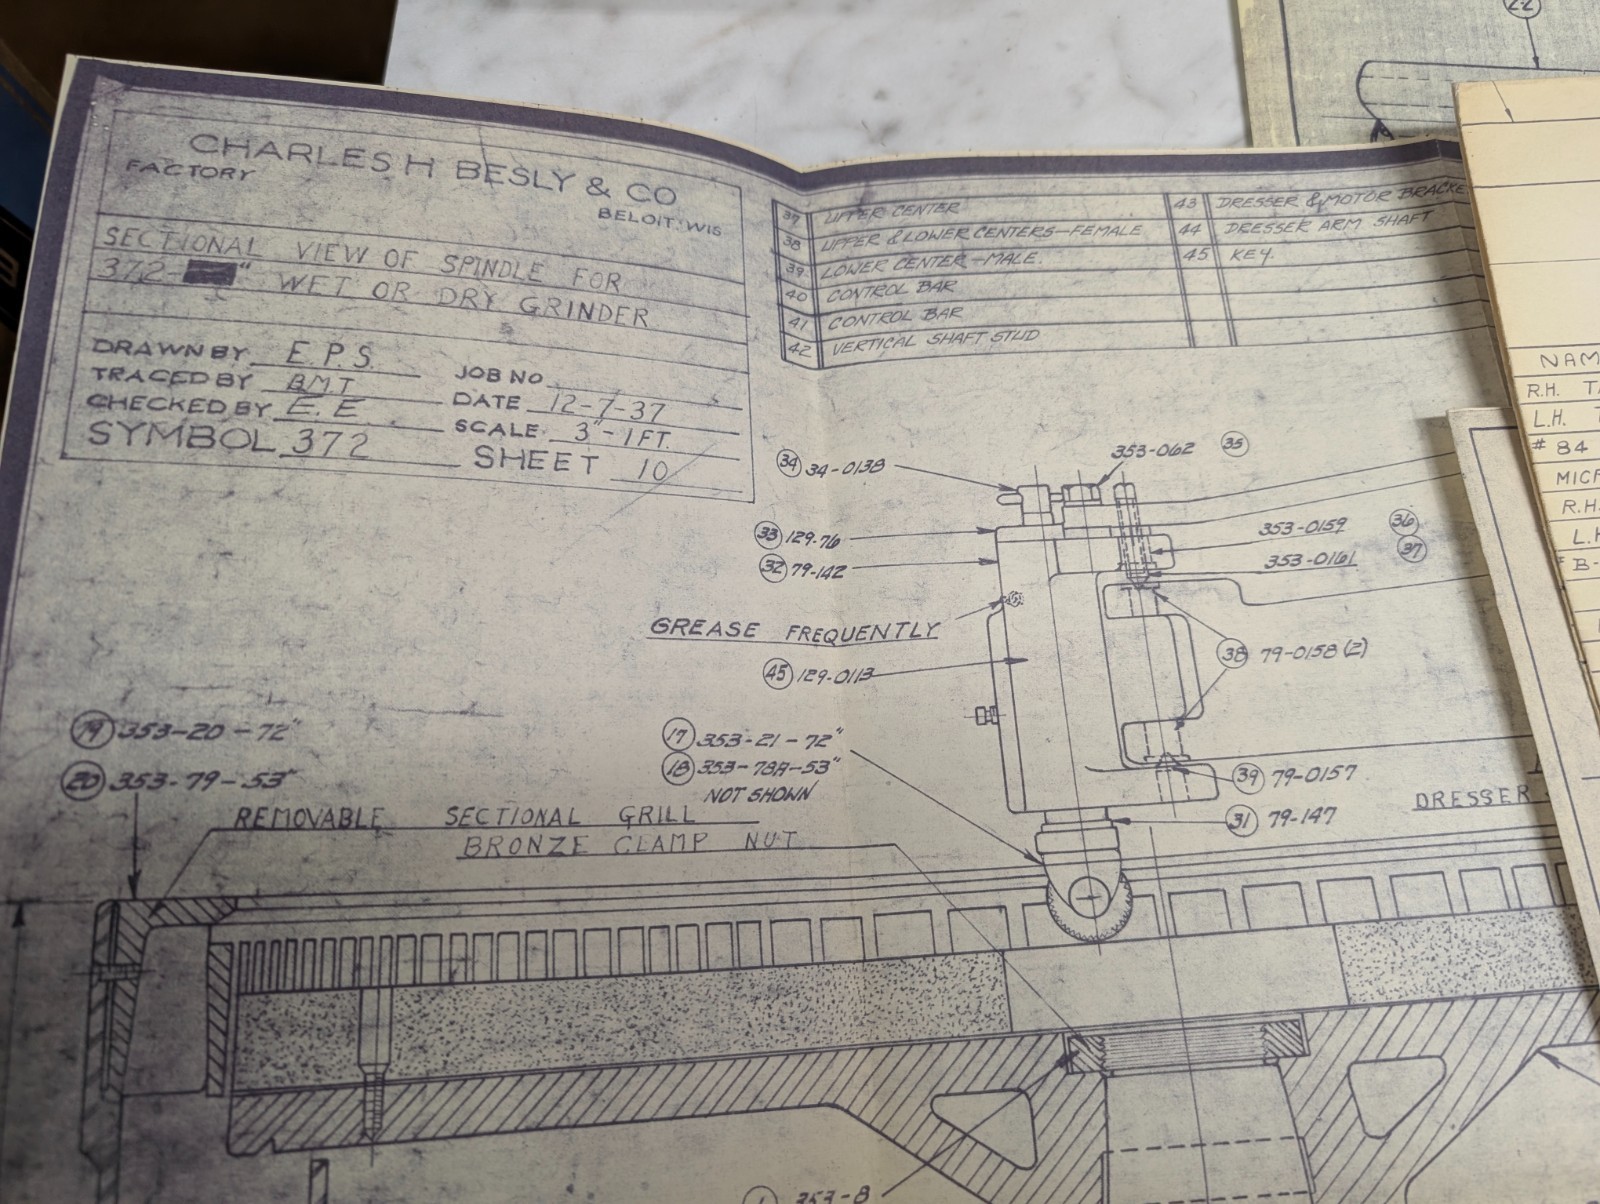 CHARLES H BESLY & CO
FACTORY
BELOIT. WIS
SECTIONAL VIEW OF SPINDLE FOR
372- " WET OR DRY GRINDER
DRAWN BY E.P.S.
TRACED BY B.M.T
CHECKED BY E.E
SYMBOL 372
JOB NO.
DATE 12-7-37
SCALE 3"-1FT.
SHEET 10
37 UPPER CENTER
38 UPPER & LOWER CENTERS-FEMALE
39 LOWER CENTER-MALE.
40 CONTROL BAR
41 CONTROL BAR
42 VERTICAL SHAFT STUD
43 DRESSER & MOTOR BRACKE
44 DRESSER ARM SHAFT
45 KEY.
34 34-0138
353-062 35
33 129-76
32 79-142
353-0159 36
353-0161 37
GREASE FREQUENTLY
38 79-0158 (2)
45 129-0113
19 353-20-72"
20 353-79-53"
17 353-21-72"
18 353-78A-53"
NOT SHOWN
39 79-0157
31 79-147
DRESSER
REMOVABLE SECTIONAL GRILL
BRONZE CLAMP NUT
1 353-8
22
NAM
R.H. TA
L.H. T
# 84
MICR
R.H.
L.H
# B-